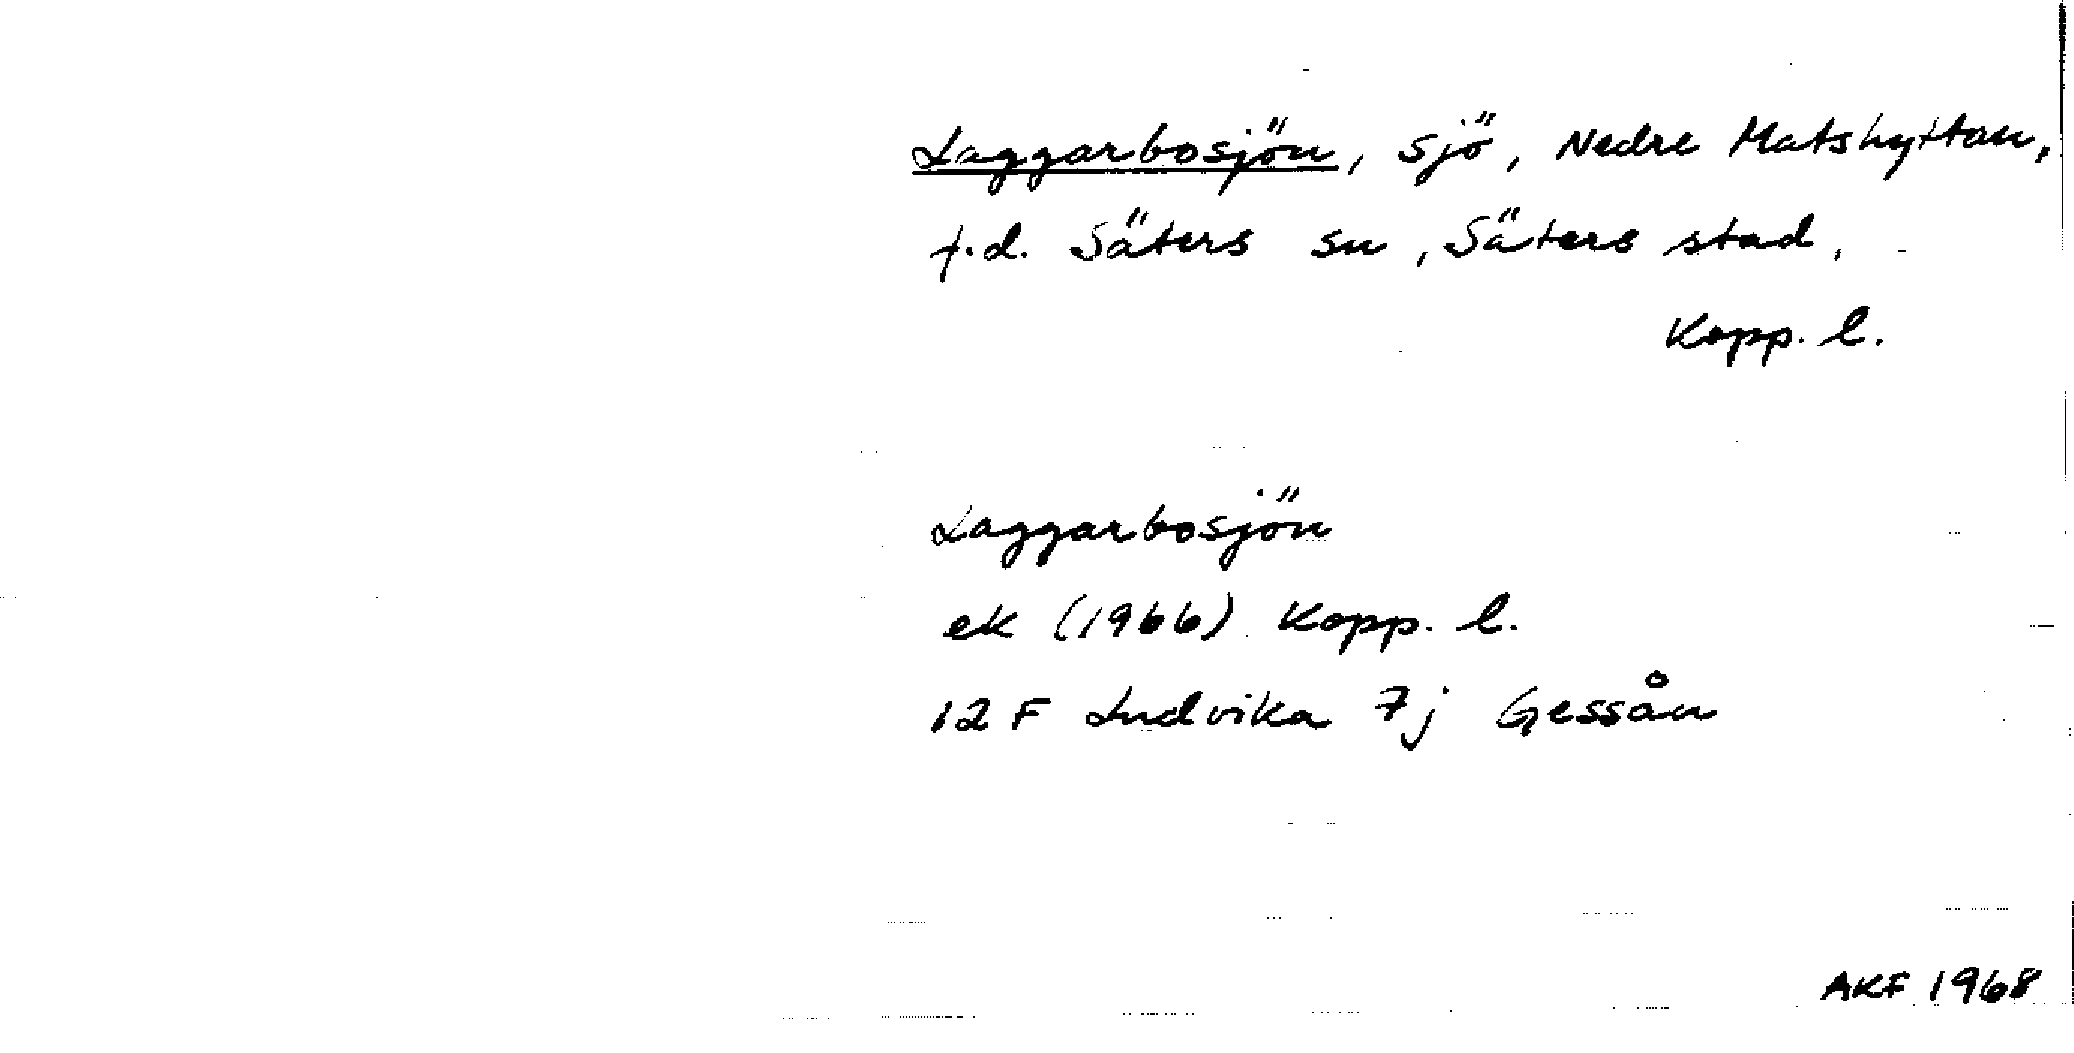 Laggarbosjön, sjö, Nedre Matshyttan,
f.d. Säters sn, Säters stad,
Kopp. l.
Laggarbosjön
ek (1966) Kopp. l.
12 F Ludvika 7j Gessån
AKF 1968